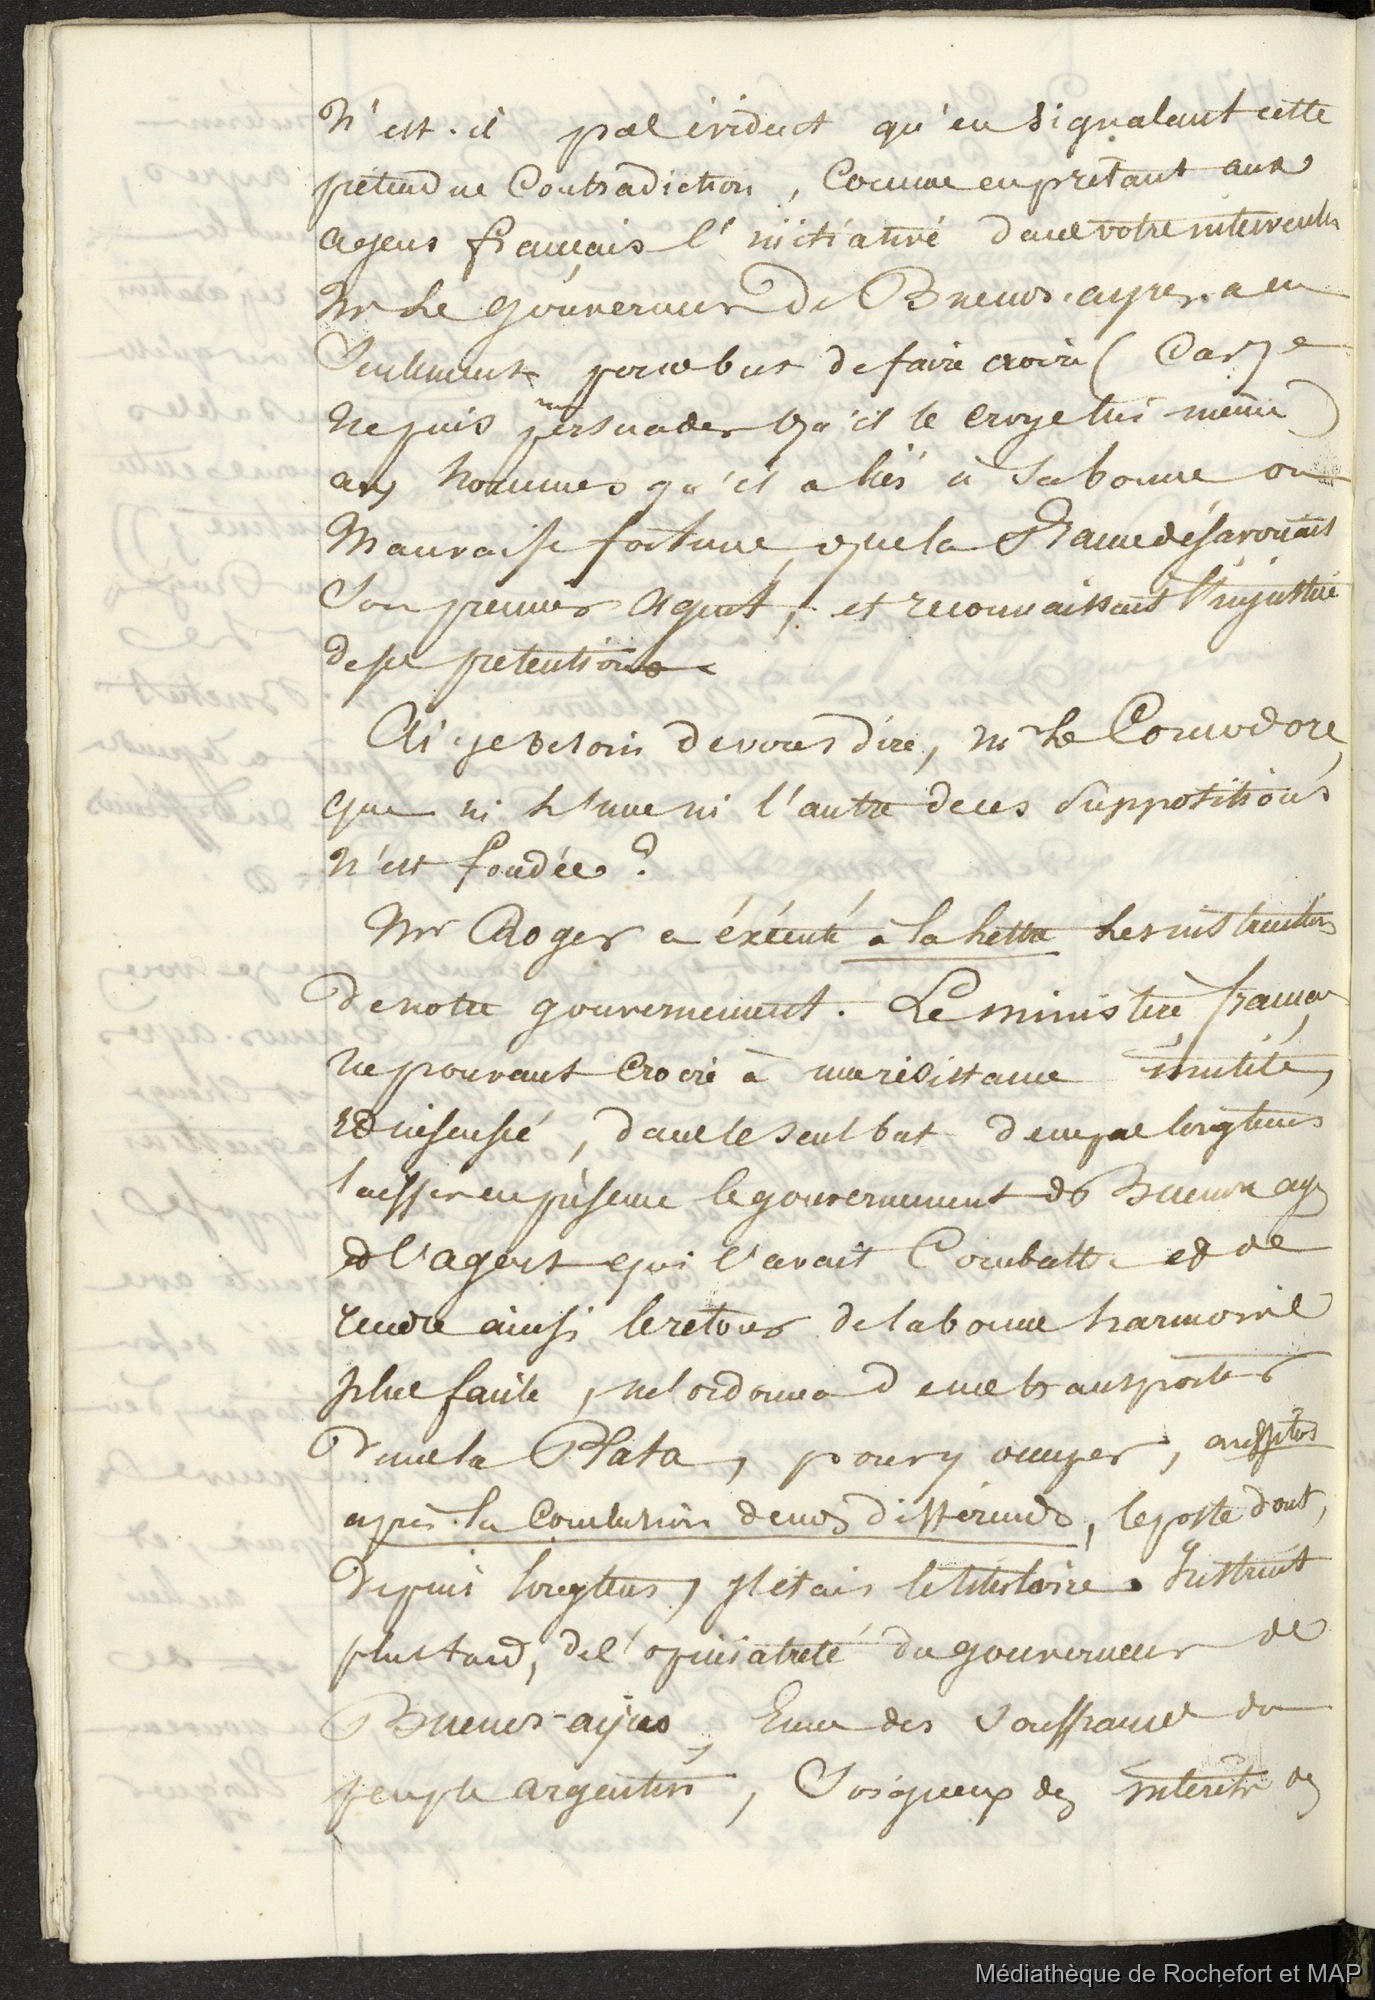 N'est-il pas évident qu'en signalant cette
pretendue Contradiction, Comme en pretant aux
agens français l'initiative dans votre intervention
Mr Le gouverneur De Buenos-ayres a eu
Seulement pour but de faire croire (Car je
ne puis me persuader qu'il le croye lui-même)
aux hommes qu'il a liés à sa bonne ou
Mauvaise fortune, que la France désavouait
Son premier Agent, et reconnaissait l'injustice
de ses pretentions
Ai-je besoin de vous dire, Mr Le Comodore,
que ni l'une ni l'autre de ces Suppositions
n'est fondée?
Mr Roger a éxécuté à la lettre les instructions
de notre gouvernement. Le ministère français
ne pouvant croire à une résistance inutile,
et insensée, dans le seul but de ne pas longtems
laisser en présence le gouvernement de Buenos ay
et l'agent qui l'avait Combattu et de
rendre ainsi le retour de la bonne harmonie
plus facile, m'ordonna de me transporter
Dans la Plata, pour y occuper, aussitôt
après la Conclusion de nos différends, le poste dont,
Depuis longtems, j'étais le titulaire. Instruit
plus tard, de l'opiniatreté du gouverneur de
Buenos-ayres, Emu des Souffrances du
peuple argentin, Soigneux des interêts des
Médiathèque de Rochefort et MAP